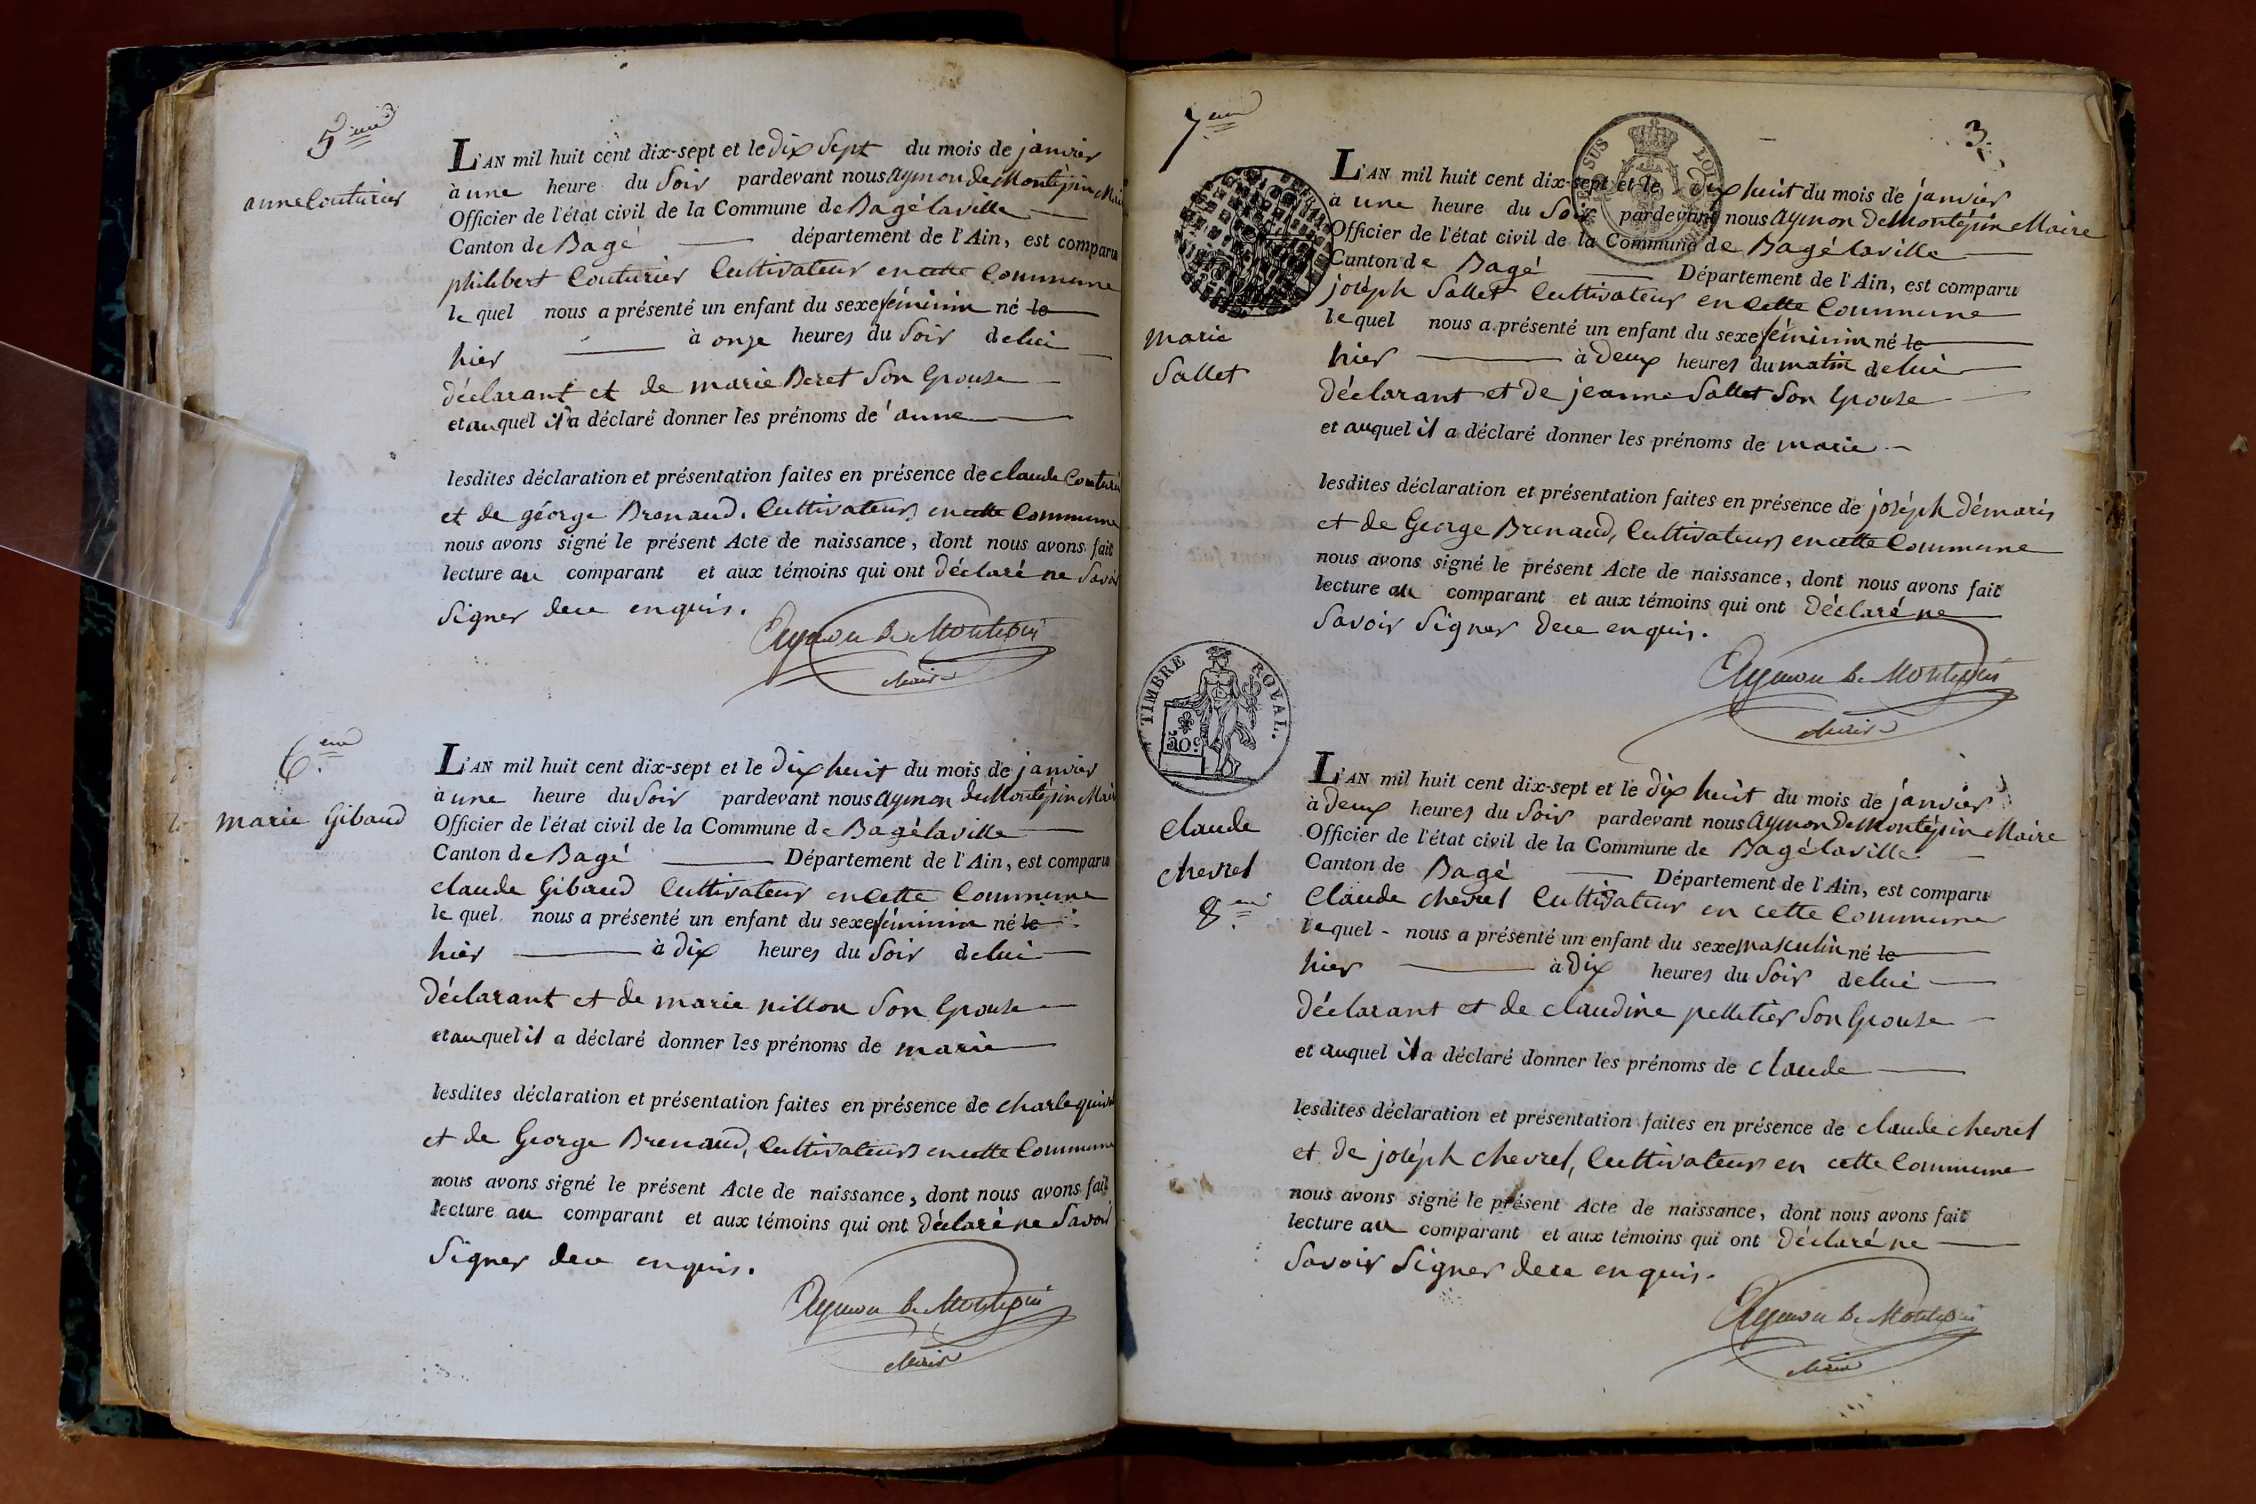 5.eme
anne Couturier
L'AN mil huit cent dix-sept et le dix Sept du mois de janvier
à une heure du Soir pardevant nous Aymon de Montépin Mai
Officier de l'état civil de la Commune de Bagélaville
Canton de Bagé département de l'Ain, est comparu
philibert Couturier Cultivateur en cette Commune
le quel nous a présenté un enfant du sexe féminin né le
hier à onze heures du Soir de lui
déclarant et de marie Beret Son Epouse
et auquel il a déclaré donner les prénoms de anne
lesdites déclaration et présentation faites en présence de claude Couturi
et de géorge Brenaud. Cultivateurs en cette Commune
nous avons signé le présent Acte de naissance, dont nous avons fait
lecture au comparant et aux témoins qui ont déclaré ne Savoir
Signer de ce enquis.
Aymon de Montepin
Maire
6.eme
marie Gibaud
L'AN mil huit cent dix-sept et le dix huit du mois de janvier
à une heure du Soir pardevant nous Aymon de Montépin Mair
Officier de l'état civil de la Commune de Bagélaville
Canton de Bagé Département de l'Ain, est comparu
claude Gibaud Cultivateur en cette Commune
le quel nous a présenté un enfant du sexe féminin né le
hier à dix heures du Soir de lui
déclarant et de marie nillon Son Epouse
et auquel il a déclaré donner les prénoms de marie
lesdites déclaration et présentation faites en présence de charle
et de George Brenaud, Cultivateurs en cette Commune
nous avons signé le présent Acte de naissance, dont nous avons fait
lecture au comparant et aux témoins qui ont déclaré ne Savoir
Signer de ce enquis.
Aymon de Montepin
Maire
7.eme
3.
marie
Sallet
L'AN mil huit cent dix-sept et le dix huit du mois de janvier
à une heure du Soir pardevant nous Aymon de Montépin Maire
Officier de l'état civil de la Commune de Bagélaville
Canton de Bagé Département de l'Ain, est comparu
joséph Sallet Cultivateur en cette Commune
le quel nous a présenté un enfant du sexe féminin né le
hier à deux heures du matin de lui
déclarant et de jeanne Sallet Son Epouse
et auquel il a déclaré donner les prénoms de marie
lesdites déclaration et présentation faites en présence de joséph démaris
et de George Brenaud, Cultivateurs en cette Commune
nous avons signé le présent Acte de naissance, dont nous avons fait
lecture au comparant et aux témoins qui ont déclaré ne
Savoir Signer de ce enquis.
Aymon de Montepin
Maire
TIMBRE ROYAL.
50 c
claude
chevrel
8.eme
L'AN mil huit cent dix-sept et le dix huit du mois de janvier
à deux heures du Soir pardevant nous Aymon de Montépin Maire
Officier de l'état civil de la Commune de Bagélaville
Canton de Bagé Département de l'Ain, est comparu
Claude chevrel Cultivateur en cette Commune
le quel nous a présenté un enfant du sexe masculin né le
hier à dix heures du Soir de lui
déclarant et de claudine pelletier Son Epouse
et auquel il a déclaré donner les prénoms de claude
lesdites déclaration et présentation faites en présence de claude chevrel
et de joséph chevrel, Cultivateurs en cette Commune
nous avons signé le présent Acte de naissance, dont nous avons fait
lecture au comparant et aux témoins qui ont déclaré ne
Savoir Signer de ce enquis.
Aymon de Montepin
Maire